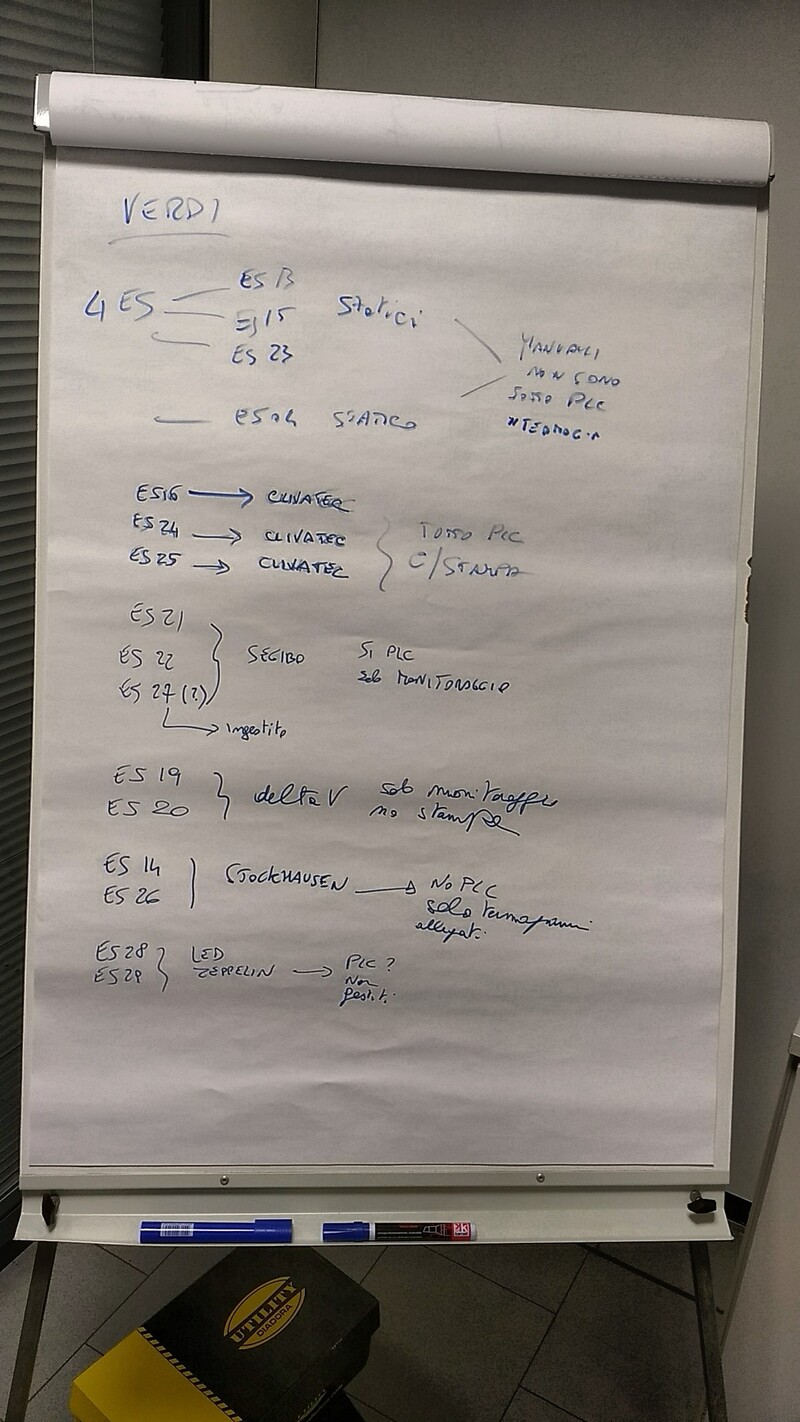 VERDI
4 ES
ES 13
ES 15
ES 23
Statici
ES04 STATICO
MANUALI
NON SONO
SOTTO PLC
ES16 → CLIVATEC
ES 24 → CLIVATEC
ES 25 → CLIVATEC
TUTTO PLC
C/STAMPA
ES 21
ES 22
ES 27 (?)
SECIBO
SI PLC
solo MONITORAGGIO
→ Ingestito
ES 19
ES 20
delta V
solo monitoraggio
no stampe
ES 14
ES 26
STOCKHAUSEN → NO PLC
solo
allegati
ES 28
ES 29
LED
ZEPPELIN → PLC?
Non
gestiti
UTILITY
DIADORA